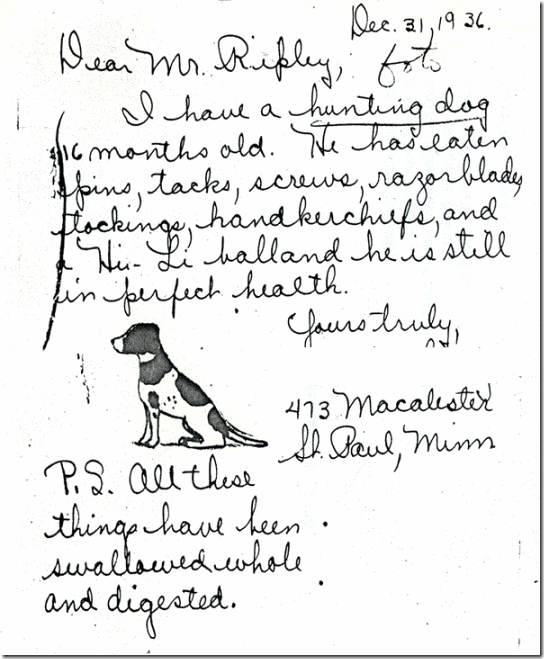 Dec. 31, 1936.
Dear Mr. Ripley, foto
I have a hunting dog
16 months old. He has eaten
pins, tacks, screws, razor blades,
stockings, handkerchiefs, and
a Hi-Li ball and he is still
in perfect health.
Yours truly,
473 Macalester
St. Paul, Minn
P.S. All these
things have been
swallowed whole
and digested.